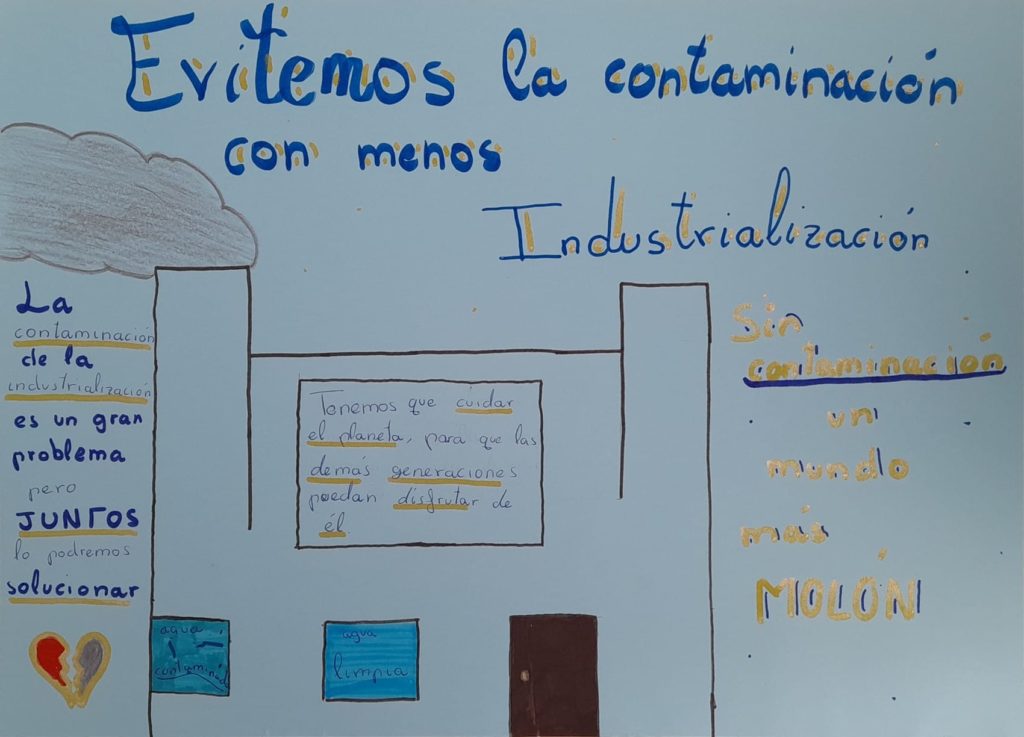 Evitemos la contaminación
con menos
Industrialización
La
contaminación
de la
industrialización
es un gran
problema
pero
JUNTOS
lo podremos
solucionar
Tenemos que cuidar
el planeta, para que las
demás generaciones
puedan disfrutar de
él
Sin
contaminación
un
mundo
más
MOLÓN
agua
contaminada
agua
limpia